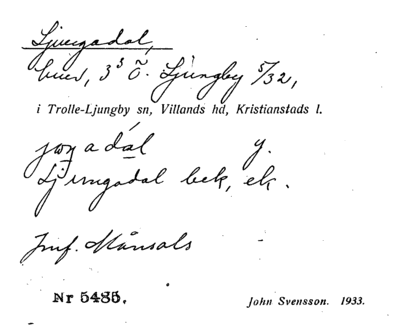 Ljungadal,
hus, 3³ Ö. Ljungby 5/32,
i Trolle-Ljungby sn, Villands hd, Kristianstads l.
joŋadál y.
Ljungadal bek, ek.
Inf. Månsols
Nr 5485.
John Svensson. 1933.